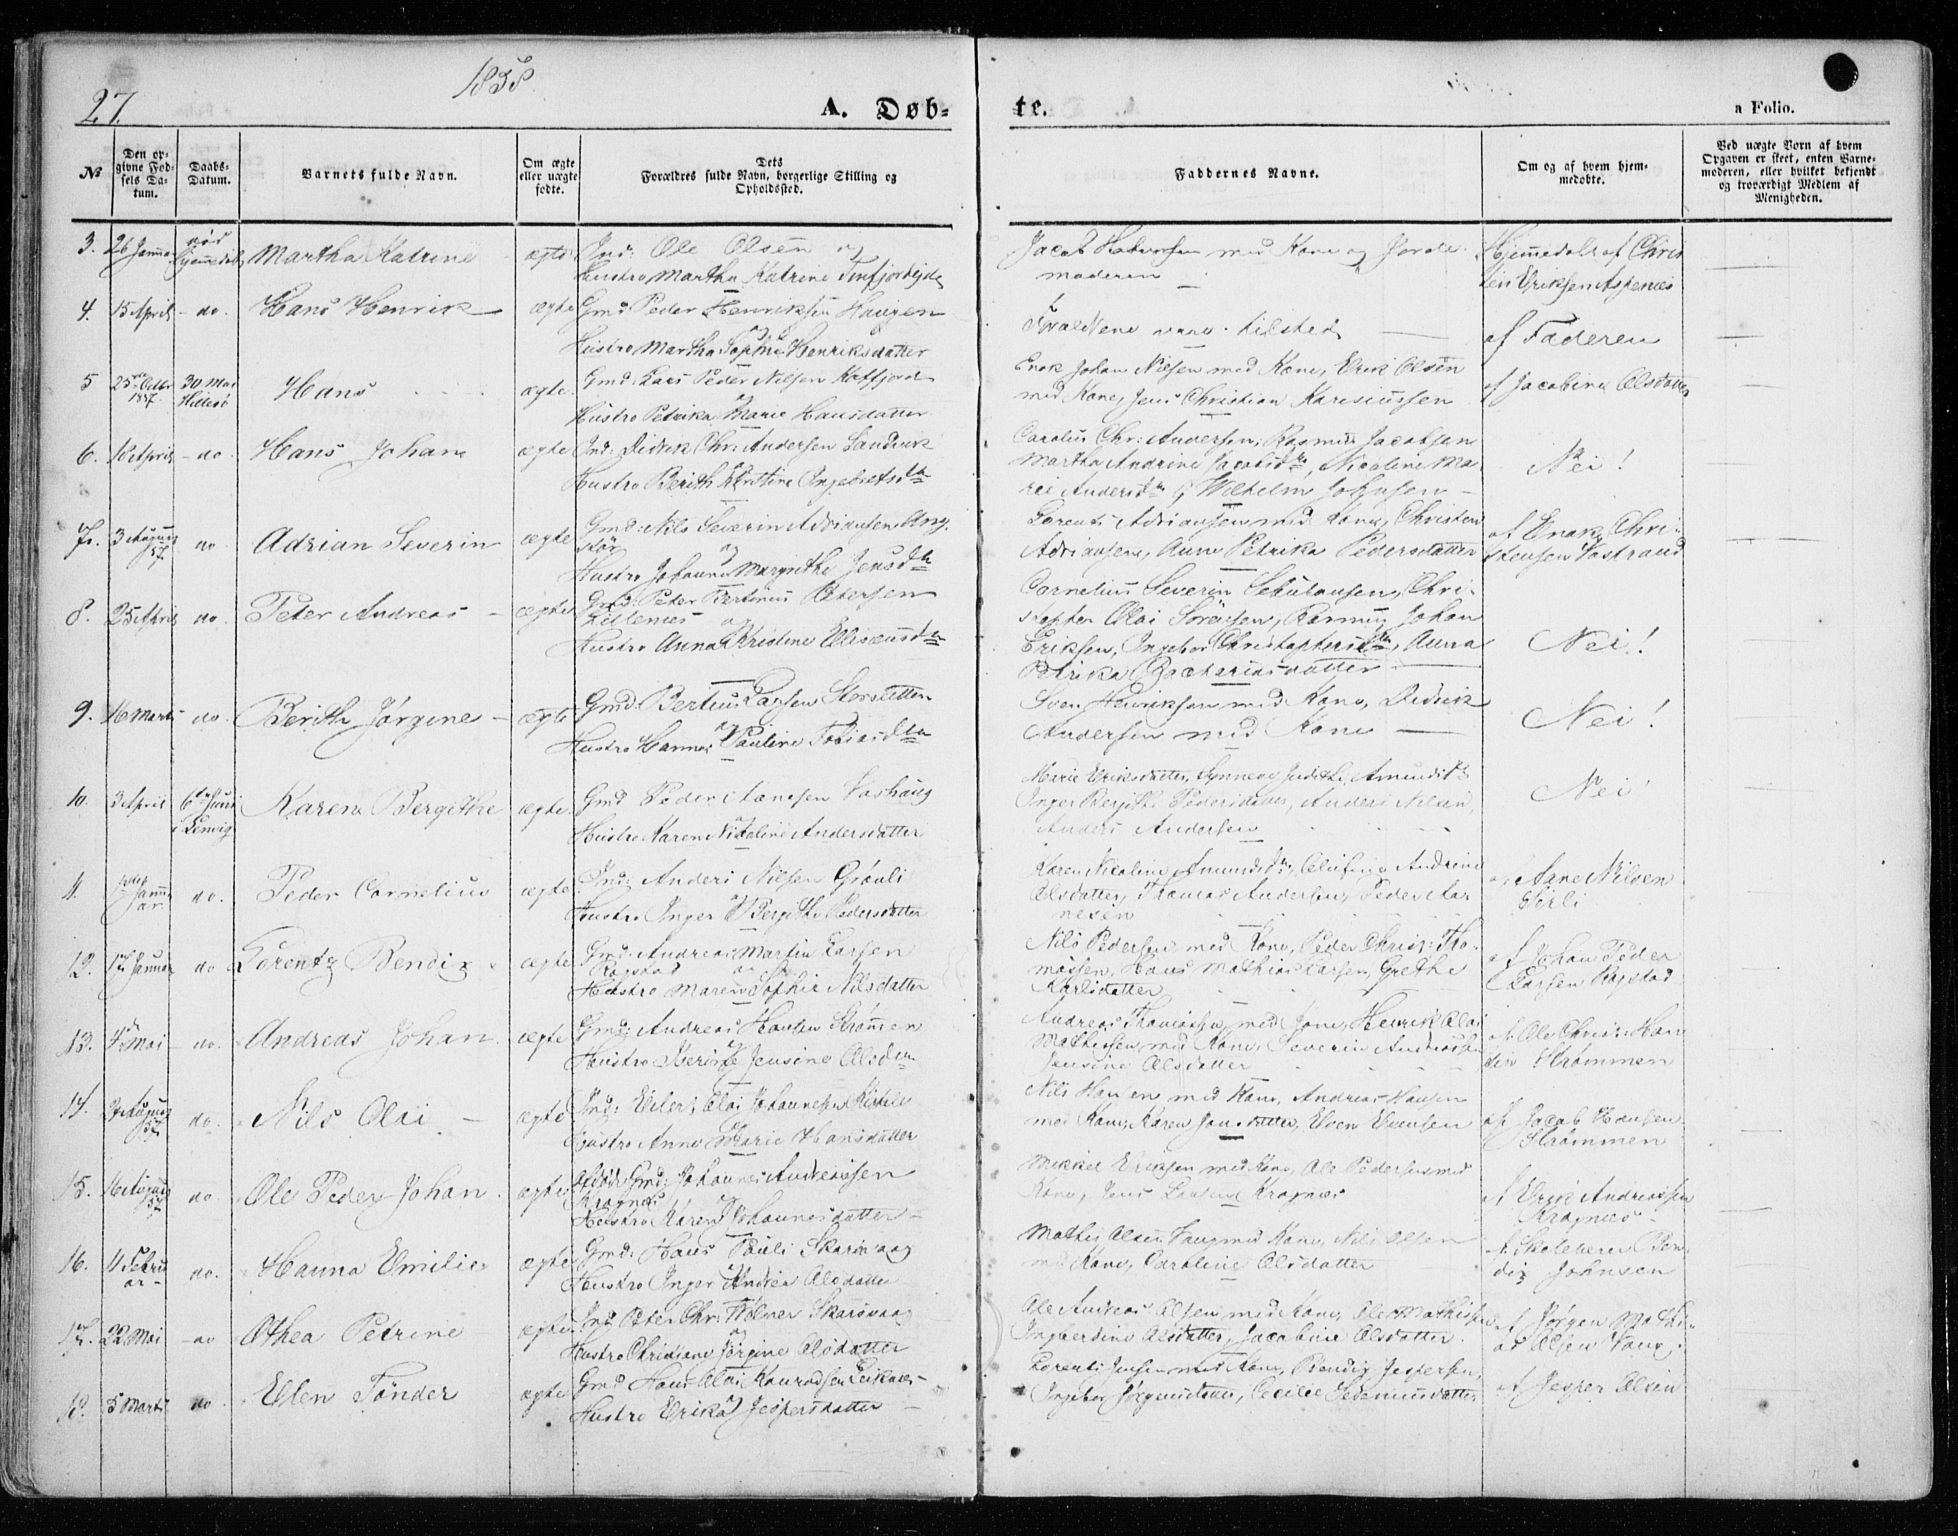 1858.
27.
A. Døb-
te.
a Folio.
№
Den op-
givne Fød-
sels Da-
tum.
Daabs-
Datum.
Barnets fulde Navn.
Om ægte
eller uægte
fødte.
Dets
Forældres fulde Navn, borgerlige Stilling og
Opholdssted.
Faddernes Navne.
Om og af hvem hjem-
medøbte.
Ved uægte Børn af hvem
Opgaven er skeet, enten Barne-
moderen, eller hvilket bekjendt
og troværdigt Medlem af
Menigheden.
3. 26 Janua Martha Katrine ægte Ind: Ole Olsen og
Hustro Martha Katrine
Jacob Halvorsen med Kone og Jorde-
moderen
Hjemmedøbt af Chris
Eriksen
4. 15 April do. Hans Henrik ægte Gmd: Peder Henriksen Haugen
Hustro Martha Sophie Henriksdatter
Forældrene vare tilsted
af Faderen
5 25 Octbr 1857. 30 Mai Hillesø Hans ægte. Gmd: Lars Peder Nilsen Katfjord
Hustro Petrika Marie Hansdatter
Enok Johan Nilsen med Kone, Erik Olsen
med Kone, Jens Christian
af Jacobine Olsdatter
6. April do Hans Johan ægte Ind: Didrik Chr: Andersen Sandvik
Hustro Berith Kirstine Ingebretsdtr
Carolus Chr: Andersen, Rasmus Jacobsen
Martha Andrine Jacobsdtr, Nicoline Ma-
rie Andersdtr og Wilhelm Johnsen
Nei!
7. 3 August 57. do Adrian Severin ægte Gmd: Nils Severin Adriansen Ang-
stør
Hustro Johanna Margrethe Jensdtr
Lorents Adriansen med Kone, Christen
Adriansen, Anne Petrika Pedersdatter
af Enok Chri-
stensen Vastrand
8. 25 April do. Peter Andreas ægte Gmd: Peter Bertinus Petersen
og
Hustro Anna Kristine Elisæusdtr
Cornelius Severin Sebulonsen, Chri-
stopher Olai Sørensen, Rasmus Johan
Eriksen, Ingebor Christophersdtr, Anna
Petrika Zachariasdatter
Nei!
9. 16 Marts do. Berith Jørgine ægte Gmd: Bertius Larsen Storsletten
Hustro Hanna Pauline Tobiasdtr
Sven Henriksen med Kone, Didrik
Andersen med Kone
Nei!
10. 3 April 6te Juni i Lenvig Karen Bergithe ægte Gmd Peder Arnesen Vashaug
Hustro Karen Nicoline Andersdatter
Marie Eriksdatter, Synneve Judith Amundsdtr
Inger Bergithe Pedersdatter, Anders Nilsen,
Anders Andersen
Nei!
11. do. Peder Cornelius ægte Ind: Anders Nilsen Gjøvli
Hustro Inger Bergithe Pedersdatter
Karen Nicoline Amundsdtr, Andrine
Olsdatter, Thomas Andersen, Peder Aar-
nesen
af Aane Nilsen
12. 17 Januar do Lorentz Bendix ægte Gmd: Andreas Martin Larsen
Rogstad og
Hustro Maren Sophie Nilsdatter
Nils Pedersen med Kone, Peder Christ: Tho-
massen, Hans Mathias Larsen, Grethe
Karlsdatter
af Johan Peder
Larsen Rogstad
13. 4 Mai do. Andreas Johan ægte Gmd: Andreas Hansen Strømmen
Hustro Berithe Jensine Olsdtr
Andreas Thomassen med Kone, Henrik Olai
Mathissen med Kone, Severin Andreassen
Jensine Olsdatter
af Ole Christ: Han
Strømmen
14. August 57 do. Nils Olai ægte Ind: Eilert Olai Johannesen
Hustro Anne Marie Hansdatter
Nils Hansen med Kone, Andreas Hansen
med Kone, Karen Jonsdatter, Even Evensen
af Jacob Hansen
Strømmen
15. 16 August 57 do. Ole Peder Johan ægte Gmd: Johannes Andreassen
Kragnæs
Hustro Karen Johannesdatter
Mikkel Eriksen med Kone, Ole Pedersen med
Kone, Jens Kragnæs
af Erik Andreassen
Kragnæs
16. 11 Febru ar do. Hanna Emilie ægte Gmd: Hans Pauli Skarsvaag
Hustro Inger Andrea Olsdatter
Mathis Olsen med Kone, Nils Olsen
med Kone, Caroline Olsdatter
af Skolelærer Ben-
dix Johnsen
17. 22 Mai do Othea Petrine ægte Ind: Peter Chr: Skarsvaag
Hustro Christiane Jørgine Olsdatter
Ole Andreas Olsen med Kone, Ole Mathissen
Ingberdine Olsdatter, Jacobine Olsdatter.
af Jørgen Mathi-
as Olsen Vang.
18. 5 Marts do Ellen Tønder ægte Gmd Hans Olai Konradsen Leiknes
Hustro Erika Jespersdatter
Lorents Jensen med Kone, Bendix Jespersen,
Ingebor Jørgensdatter, Cecilie
af Jesper Olsen